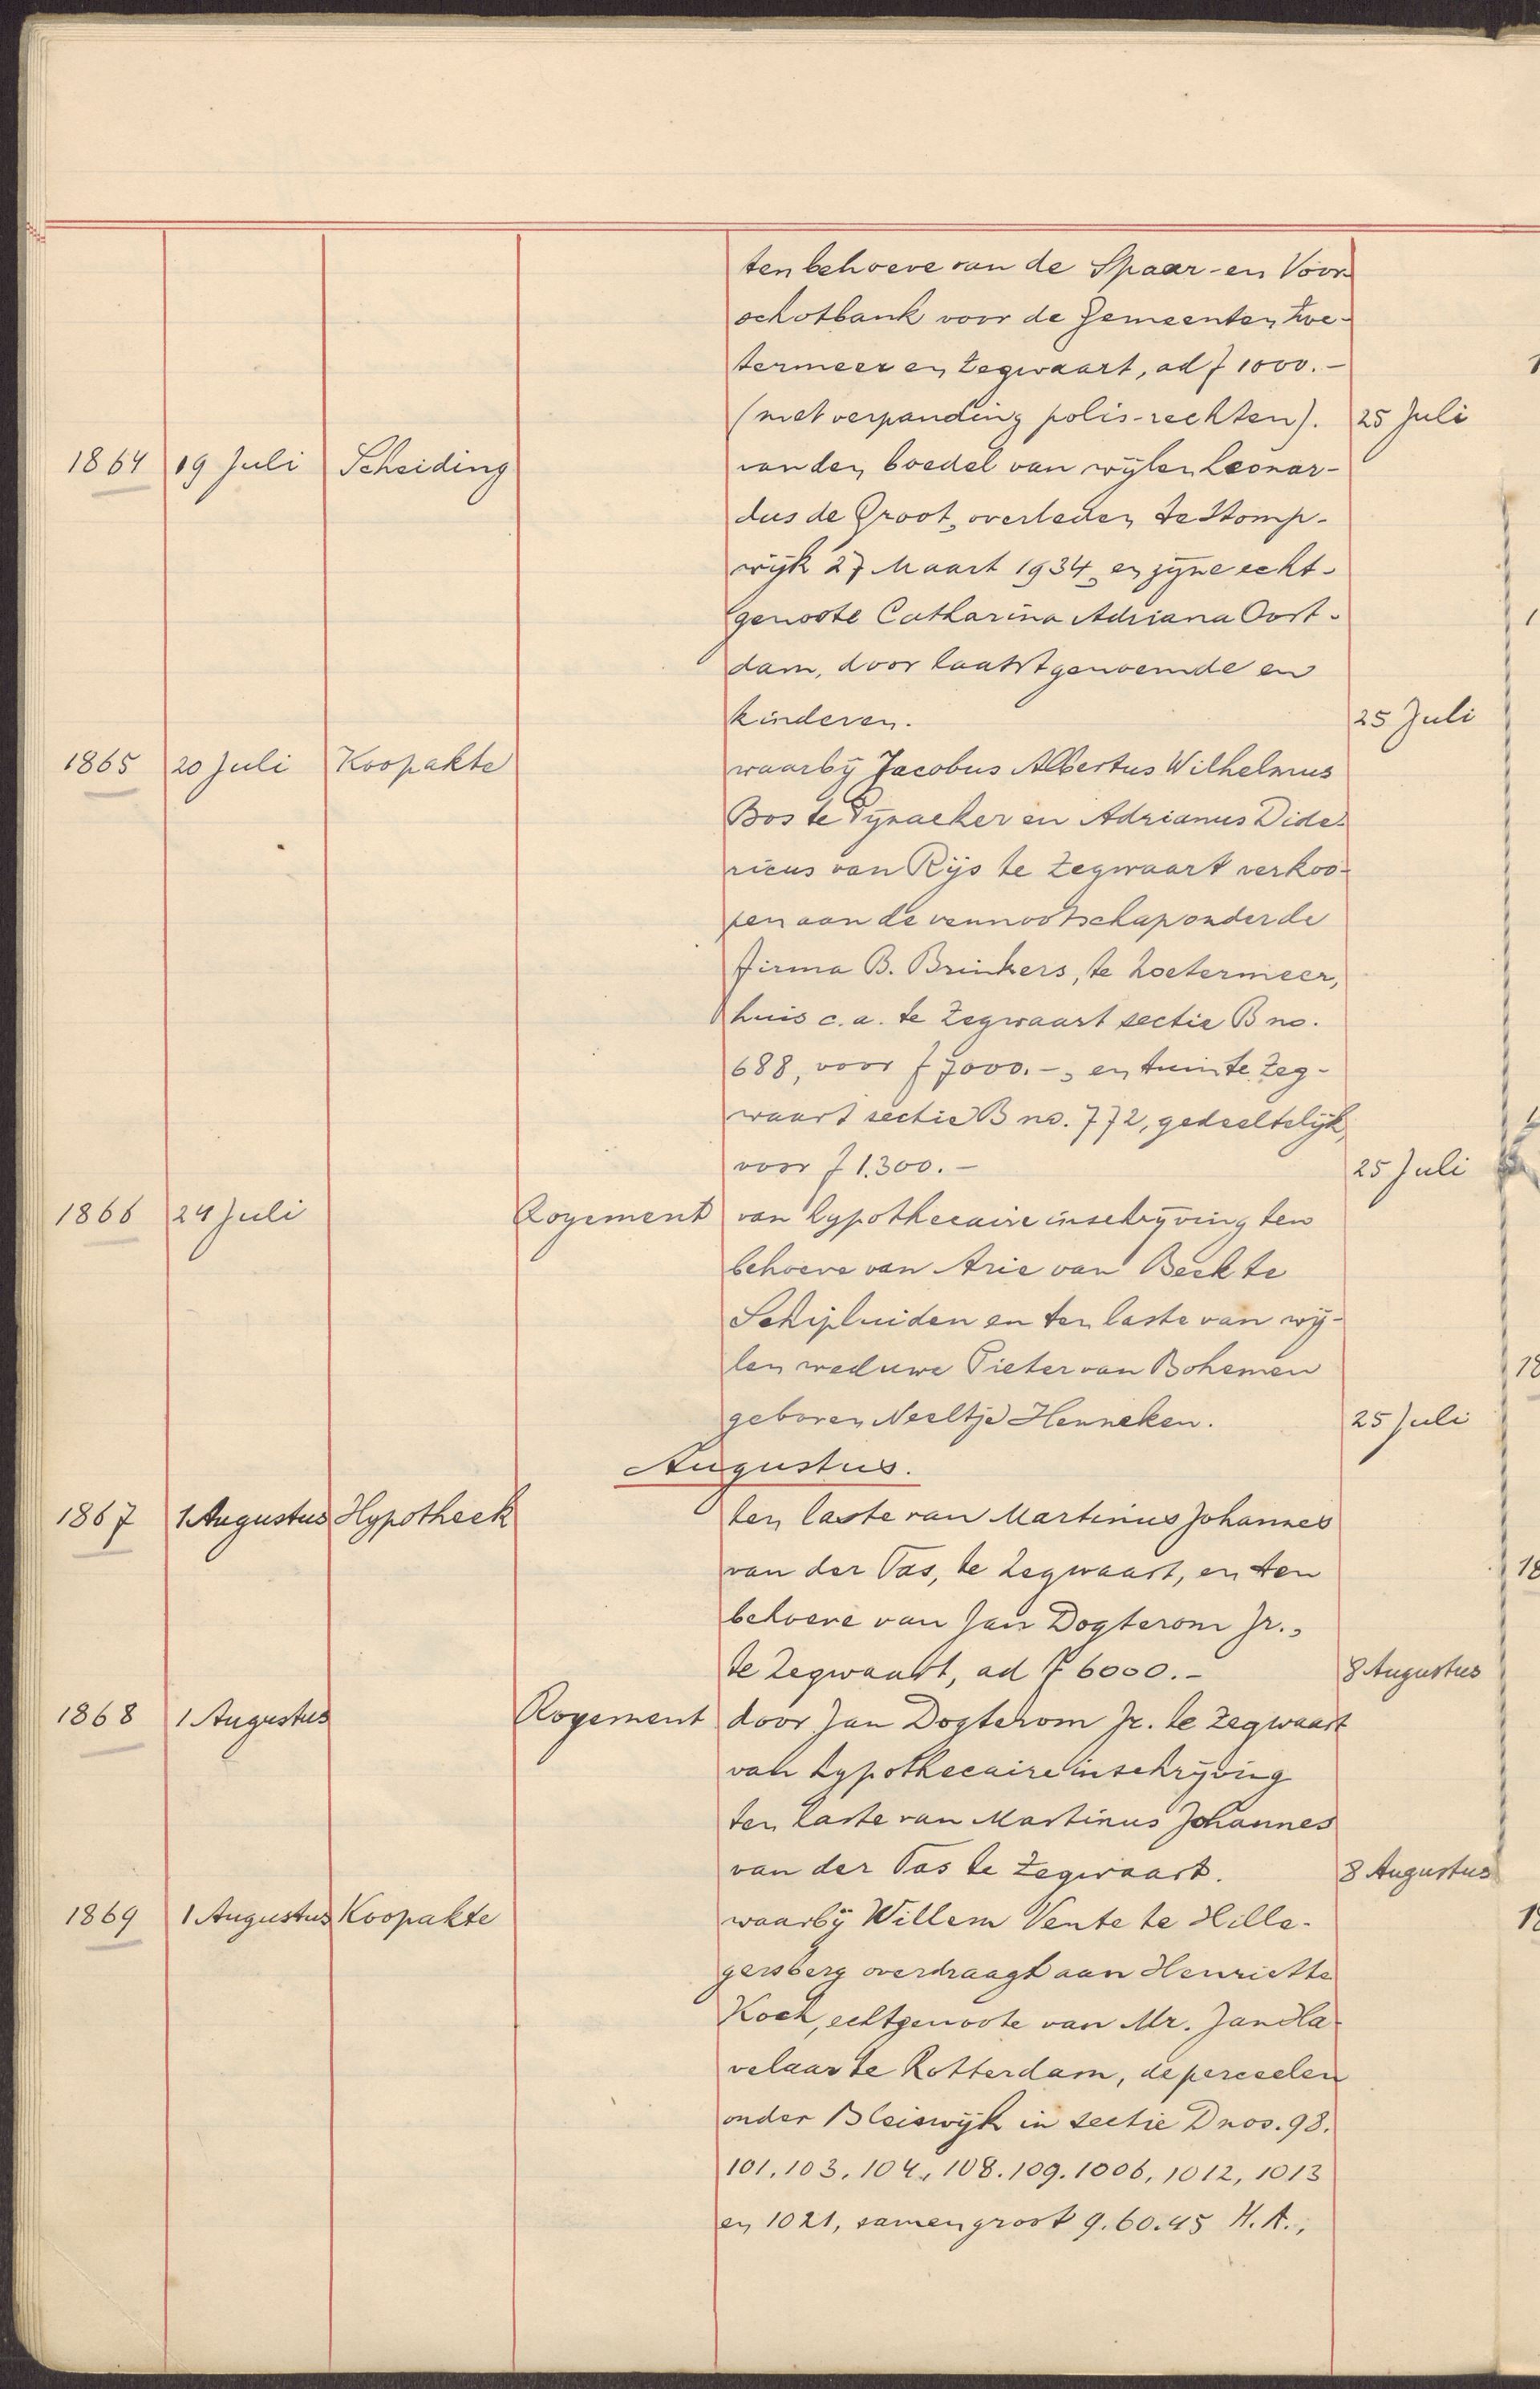 ten behoeve van de Spaar- en Voor
schotbank voor de Gemeenten Zoe-
termeer en Zegwaart, ad f 1000.-
(met verpanding polis-rechten). 25 Juli
1864 19 Juli Scheiding van den boedel van wijlen Leonar-
dus de Groot, overleden te Stomp-
wijk 27 Maart 1934, en zijne echt-
genoote Catharina Adriana Oost-
dam, door laatstgenoemde en
kinderen. 25 Juli
1865 20 Juli Koopakte waarbij Jacobus Albertus Wilhelmus
Bos te Pijnacker en Adrianus Dide-
ricus van Rijs te Zegwaart verkoo-
pen aan de vennootschap onder de
firma B. Brinkers, te Zoetermeer,
huis c.a. te Zegwaart sectie B no.
688, voor f 7000.-, en tuin te Zeg-
waart sectie B no. 772, gedeeltelijk,
voor f 1.300.- 25 Juli
1866 24 Juli Royement van hypothecaire inschrijving ten
behoeve van Arie van Beek te
Schipluiden en ten laste van wij-
len weduwe Pieter van Bohemen
geboren Neeltje Henneken. 25 Juli
Augustus.
1867 1 Augustus Hypotheek ten laste van Martinus Johannes
van der Tas, te Zegwaart, en ten
behoeve van Jan Dogterom Jr.,
te Zegwaart, ad f 6000.- 8 Augustus
1868 1 Augustus Royement door Jan Dogterom Jr. te Zegwaart
van hypothecaire inschrijving
ten laste van Martinus Johannes
van der Tas te Zegwaart. 8 Augustus
1869 1 Augustus Koopakte waarbij Willem Vente te Hille-
gersberg overdraagt aan Henriette
Koch, echtgenoote van Mr. Jan Ha-
velaar te Rotterdam, de perceelen
onder Bleiswijk in sectie D nos. 98.
101. 103. 104, 108. 109. 1006, 1012, 1013
en 1021, samen groot 9.60.45 H.A.;